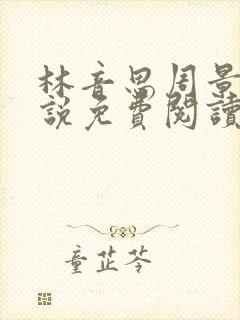 林音思周景
說免費閱讀
童芷苓